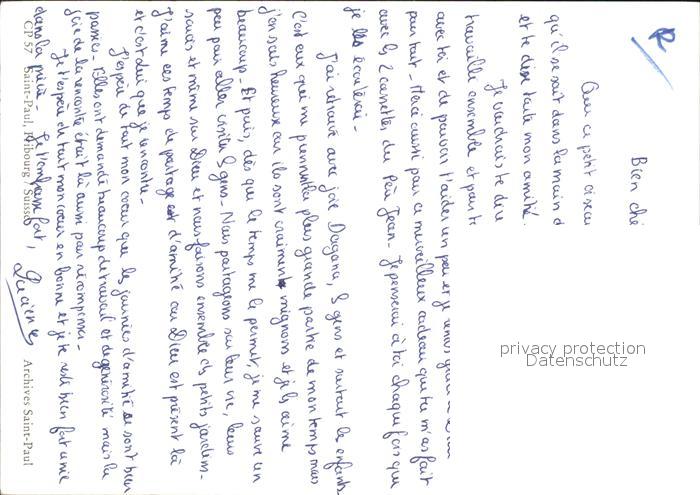 R
Bien ché
Que ce petit oiseau
qu'il se sait dans la main d
et te dise toute mon amitié.
Je voudrais te dire
travaille ensemble et pour te
avec toi et de pouvoir t'aider un peu et je
pour tout - Merci aussi pour ce merveilleux cadeau que tu m'as fait
avec les 2 cassettes du Père Jean - Je penserai à toi chaque fois que
je les écouterai -
J'ai retrouvé avec joie Dagana, les gens et surtout les enfants
C'est eux qui me prennent la plus grande partie de mon temps mais
j'en suis heureuse car ils sont vraiment mignons et je les aime
beaucoup - Et puis, dès que le temps me le permet, je me sauve un
peu pour aller visiter les gens - Nous partageons sur leur vie, leurs
soucis et même sur Dieu et nous faisons ensemble des petits jardins -
J'aime ces temps de partage et d'amitié car Dieu est présent là
et c'est lui que je rencontre -
J'espère de tout mon coeur que les journées d'amitié se sont bien
passées - Elles ont demandé beaucoup de travail et de générosité mais la
joie de la rencontre était là aussi pour récompenser -
Je t'espère de tout mon coeur en bonne et je te reste bien fort unie
dans la prière Je t'embrasse fort,
Lucienne
CP 57 Saint-Paul, Fribourg / Suisse
Archives Saint-Paul
privacy protection
Datenschutz